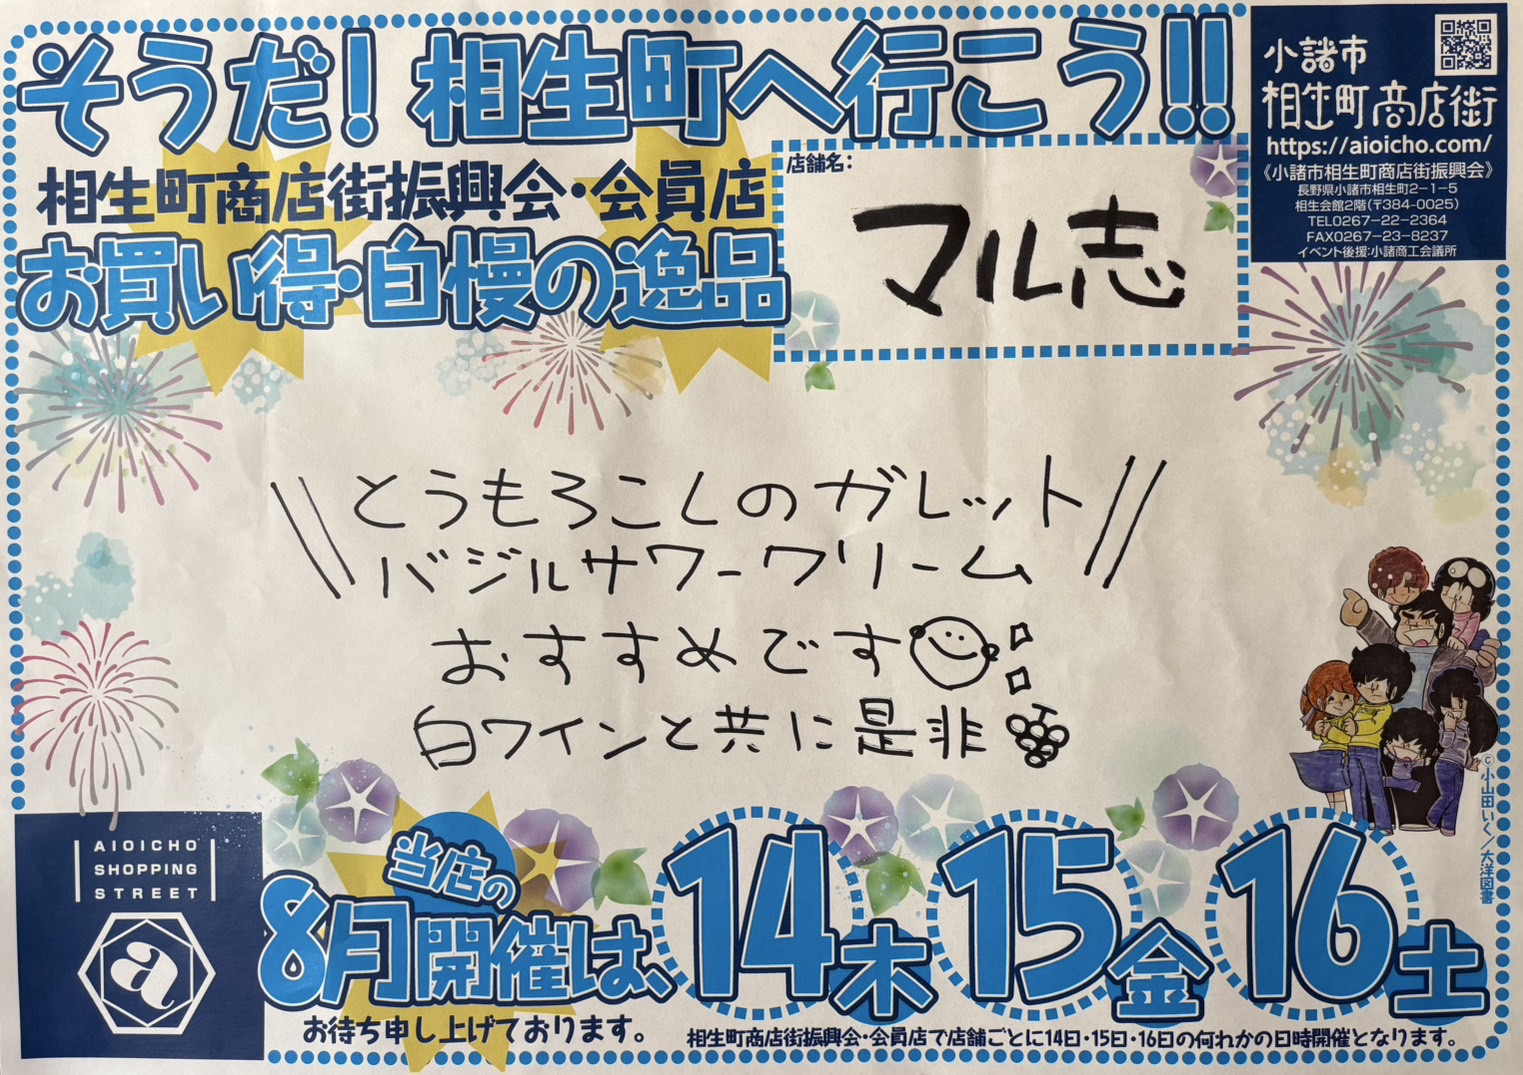 そうだ！相生町へ行こう!!
相生町商店街振興会・会員店
お買い得・自慢の逸品
店舗名：
マル志
小諸市
相生町商店街
https://aioicho.com/
《小諸市相生町商店街振興会》
長野県小諸市相生町2−1−5
相生会館2階(〒384−0025)
TEL0267−22−2364
FAX0267−23−8237
イベント後援:小諸商工会議所
とうもろこしのガレット
バジルサワークリーム
おすすめです
白ワインと共に是非
©小山田いく／大洋図書
AIOICHO
SHOPPING
STREET
a
当店の
8月開催は、14木 15金 16土
お待ち申し上げております。
相生町商店街振興会・会員店で店舗ごとに14日・15日・16日の何れかの日時開催となります。